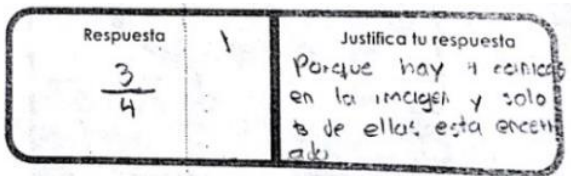 Respuesta
3
4
Justifica tu respuesta
Porque hay 4 canicas
en la imagen y solo
3 de ellas esta encerr
ado